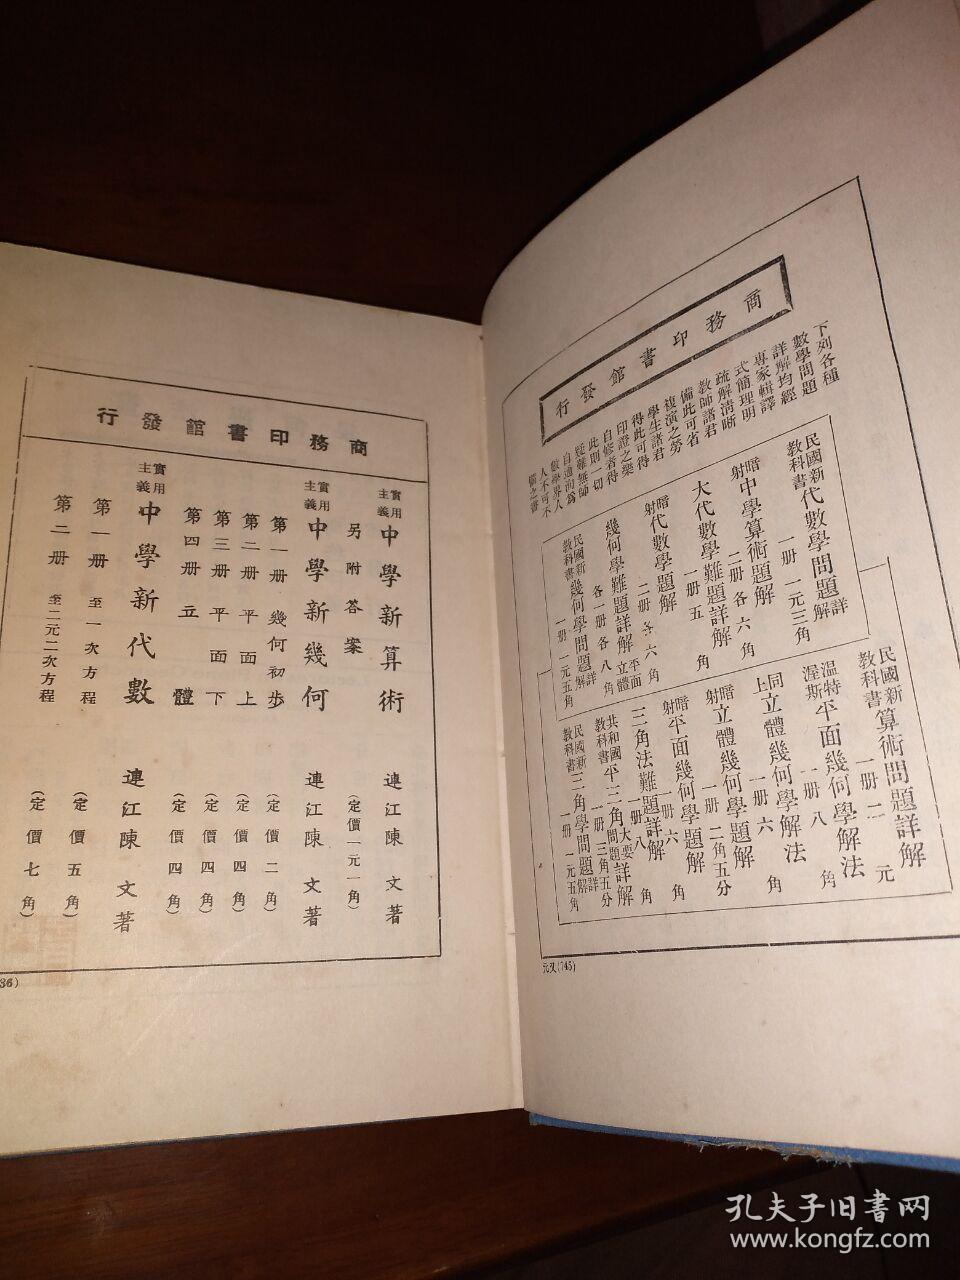 商務印書館發行
下列各種
數學問題
詳解均經
專家輯譯
式簡理明
疏解清晰
教師諸君
備此可省
複演之勞
學生諸君
得此可得
印證之樂
自修者得
此則一切
疑難無師
自通尚為
數學界人
人不可不
備之書
民國新教科書 代數學問題詳解 一册 一元三角
暗射 中學算術題解 二册 各六角
大代數學難題詳解 一册 五角
暗射 代數學題解 二册 各六角
幾何學難題詳解 平面 立體 各一册 各八角
民國新教科書 幾何學問題詳解 一册 一元五角
民國新教科書 算術問題詳解 一册 二元
溫特渥斯 平面幾何學解法 一册 八角
同上 立體幾何學解法 一册 六角
暗射 立體幾何學題解 一册 二角五分
暗射 平面幾何學題解 一册 六角
三角法難題詳解 一册 八角
共和國教科書 平三角大要問題詳解 一册 三角五分
民國新教科書 三角學問題詳解 一册 一元五角
元又(745)
商務印書館發行
實用主義 中學新算術 連江陳文著
另附答案 (定價一元一角)
實用主義 中學新幾何 連江陳文著
第一册 幾何初步 (定價二角)
第二册 平面上 (定價四角)
第三册 平面下 (定價四角)
第四册 立體 (定價四角)
實用主義 中學新代數 連江陳文著
第一册 至一次方程 (定價五角)
第二册 至二元二次方程 (定價七角)
36)
孔夫子旧書网
www.kongfz.com